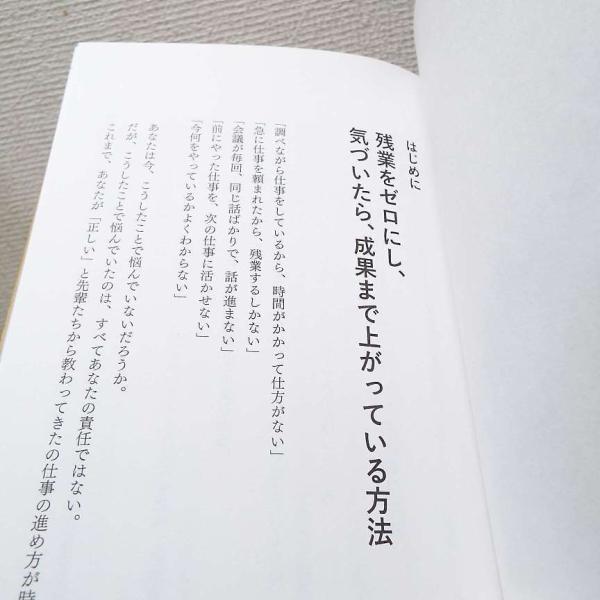 はじめに
残業をゼロにし、
気づいたら、成果まで上がっている方法
「調べながら仕事をしているから、時間がかかって仕方がない」
「急に仕事を頼まれたから、残業するしかない」
「会議が毎回、同じ話ばかりで、話が進まない」
「前にやった仕事を、次の仕事に活かせない」
「今何をやっているかよくわからない」
あなたは今、こうしたことで悩んでいないだろうか。
だが、こうしたことで悩んでいたのは、すべてあなたの責任ではない。
これまで、あなたが「正しい」と先輩たちから教わってきたの仕事の進め方が時